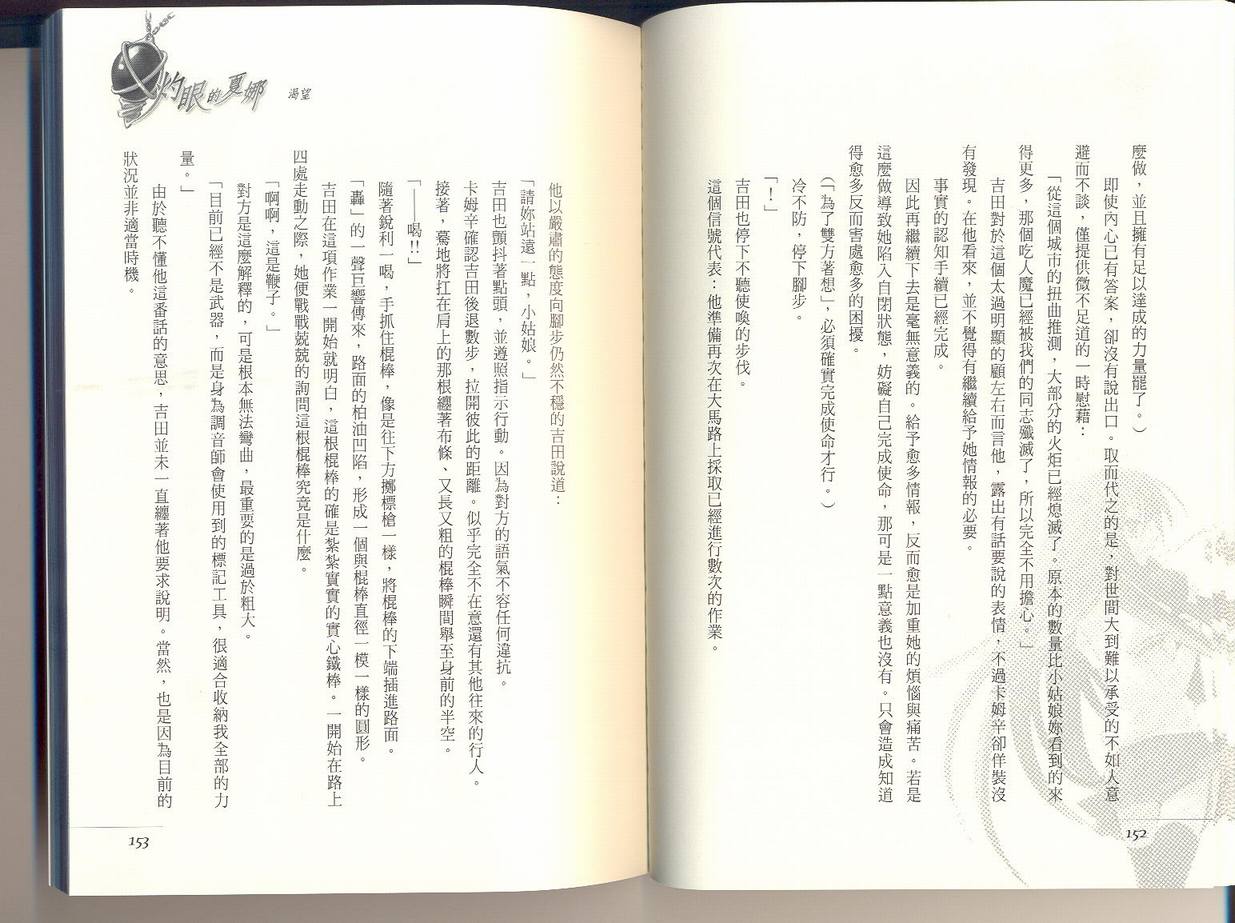 麼做，並且擁有足以達成的力量罷了。）
即使內心已有答案，卻沒有說出口。取而代之的是，對世間大到難以承受的不如人意
避而不談，僅提供微不足道的一時慰藉：
「從這個城市的扭曲推測，大部分的火炬已經熄滅了。原本的數量比小姑娘妳看到的來
得更多，那個吃人魔已經被我們的同志殲滅了，所以完全不用擔心。」
吉田對於這個太過明顯的顧左右而言他，露出有話要說的表情，不過卡姆辛卻佯裝沒
有發現。在他看來，並不覺得有繼續給予她情報的必要。
事實的認知手續已經完成。
因此再繼續下去是毫無意義的。給予愈多情報，反而愈是加重她的煩惱與痛苦。若是
這麼做導致她陷入自閉狀態，妨礙自己完成使命，那可是一點意義也沒有。只會造成知道
得愈多反而害處愈多的困擾。
（「為了雙方著想」，必須確實完成使命才行。）
冷不防，停下腳步。
「！」
吉田也停下不聽使喚的步伐。
這個信號代表：他準備再次在大馬路上採取已經進行數次的作業。
152
灼眼的夏娜 渴望
他以嚴肅的態度向腳步仍然不穩的吉田說道：
「請妳站遠一點，小姑娘。」
吉田也顫抖著點頭，並遵照指示行動。因為對方的語氣不容任何違抗。
卡姆辛確認吉田後退數步，拉開彼此的距離。似乎完全不在意還有其他往來的行人。
接著，驀地將扛在肩上的那根纏著布條、又長又粗的棍棒瞬間舉至身前的半空。
「——喝!!」
隨著銳利一喝，手抓住棍棒，像是往下方擲標槍一樣，將棍棒的下端插進路面。
「轟」的一聲巨響傳來，路面的柏油凹陷，形成一個與棍棒直徑一模一樣的圓形。
吉田在這項作業一開始就明白，這根棍棒的確是紮紮實實的實心鐵棒。一開始在路上
四處走動之際，她便戰戰兢兢的詢問這根棍棒究竟是什麼。
「啊啊，這是鞭子。」
對方是這麼解釋的，可是根本無法彎曲，最重要的是過於粗大。
「目前已經不是武器，而是身為調音師會使用到的標記工具，很適合收納我全部的力
量。」
由於聽不懂他這番話的意思，吉田並未一直纏著他要求說明。當然，也是因為目前的
狀況並非適當時機。
153